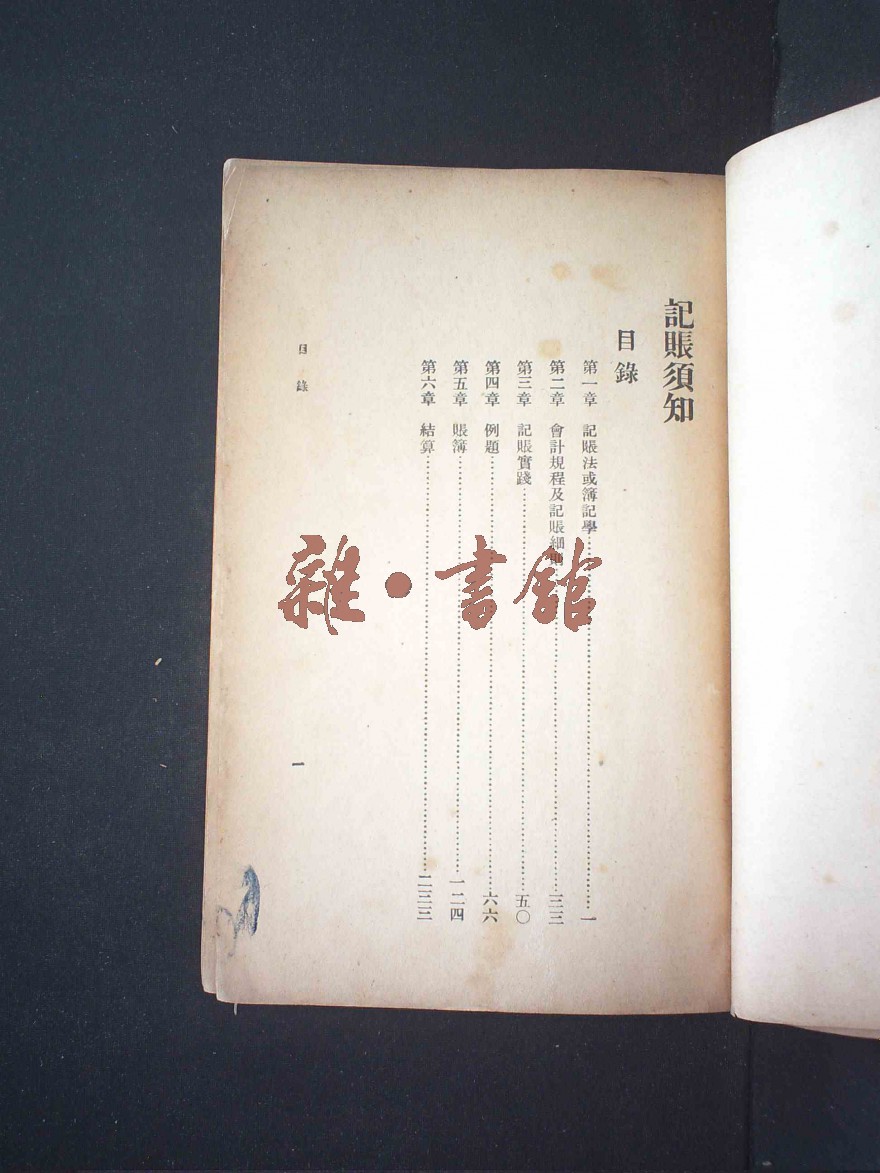 記賬須知
目錄
第一章 記賬法或簿記學……一
第二章 會計規程及記賬細則……三三
第三章 記賬實踐……五〇
第四章 例題……六六
第五章 賬簿……一二四
第六章 結算……二三三
目錄 一
雜·書館